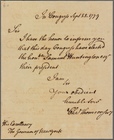 In Congress Sept 28. 1779
Sir
I have the honor to inform you
that this day Congress have elected
the honble Samuel Huntington esqr
their president
I am
Sir
Your obedient
humble Servt
Chas Thomson secy
His Excellency
The Governor of